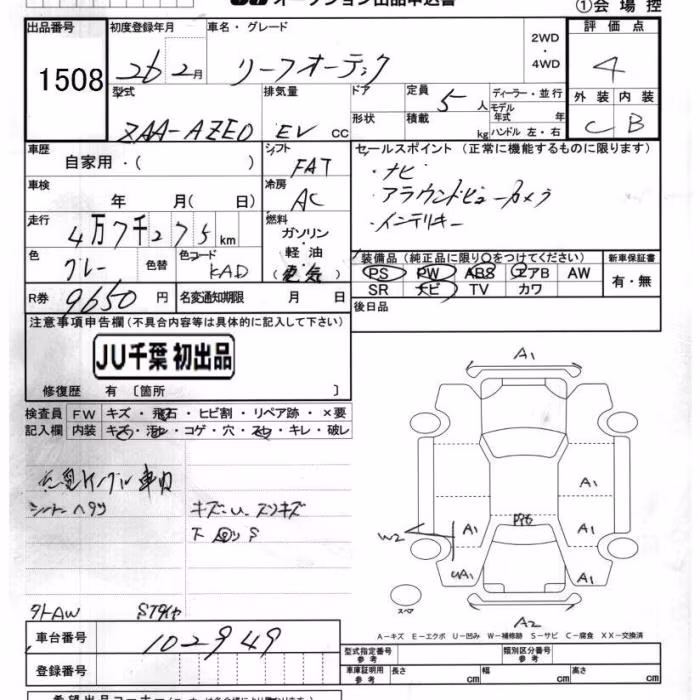 オークション出品申込書
①会場控
出品番号 1508
初度登録年月 26 2月
車名・グレード リーフオーテック
2WD・4WD
評価点 4
外装 C 内装 B
型式 ZAA-AZE0
排気量 EV cc
ドア形状
定員 5人
積載 kg
ディーラー・並行
モデル年式 年
ハンドル 左・右
車歴 自家用・( )
シフト FAT
セールスポイント (正常に機能するものに限ります)
・ナビ
・アラウンドビューカメラ
・インテリキー
車検 年 月( 日)
冷房 AC
走行 4万7千275km
燃料 ガソリン・軽油・(電気)
色 グレー 色替 色コード KAD
装備品(純正品に限り○をつけてください)
PS PW ABS エアB AW
SR ナビ TV カワ
新車保証書 有・無
R券 9650円
名変通知期限 月 日
後日品
注意事項申告欄(不具合内容等は具体的に記入して下さい)
JU千葉 初出品
修復歴 有 〔箇所 〕
検査員記入欄
FW キズ・飛石・ヒビ割・リペア跡・×要
内装 キズ・汚レ・コゲ・穴・スレ・キレ・破レ
シートヘタリ
キズ小、スリキズ
下 S
外AW Sタイヤ
A1
A1
A1
A1
A1
W2
P76
UA1
A1
A2
スペア
A-キズ E-エクボ U-凹み W-補修跡 S-サビ C-腐食 XX-交換済
車台番号 102949
登録番号
型式指定番号 参考
類別区分番号 参考
車庫証明用 参考 長さ cm 幅 cm 高さ cm